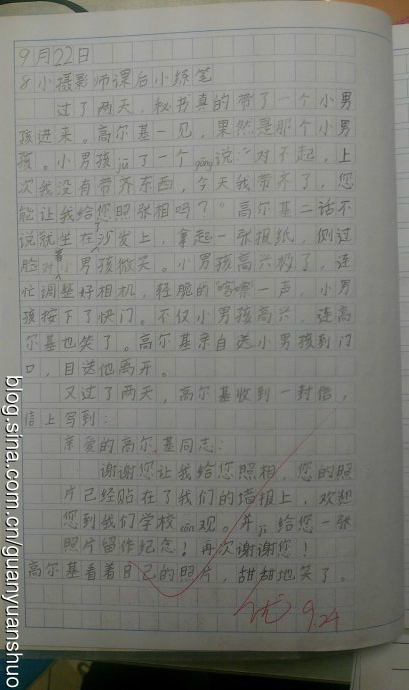 9月22日
8小摄影师课后小练笔
过了两天，秘书真的带了一个小男
孩进来。高尔基一见，果然是那个小男
孩。小男孩jū了一个gōng说：“对不起，上
次我没有带齐东西，今天我带齐了，您
能让我给您照张相吗？”高尔基二话不
说就坐在沙发上，拿起一张报纸，侧过
脸对着小男孩微笑。小男孩高兴极了，连
忙调整好相机，轻脆的咔嚓一声，小男
孩按下了快门。不仅小男孩高兴，连高
尔基也笑了。高尔基亲自送小男孩到门
口，目送他离开。
又过了两天，高尔基收到一封信，
信上写到：
亲爱的高尔基同志：
谢谢您让我给您照相，您的照
片已经贴在了我们的墙报上，欢迎
您到我们学校cān观。并jì给您一张
照片留作纪念！再次谢谢您！
高尔基看着自己的照片，甜甜地笑了。
优 9.24
blog.sina.com.cn/guanyuanshuo